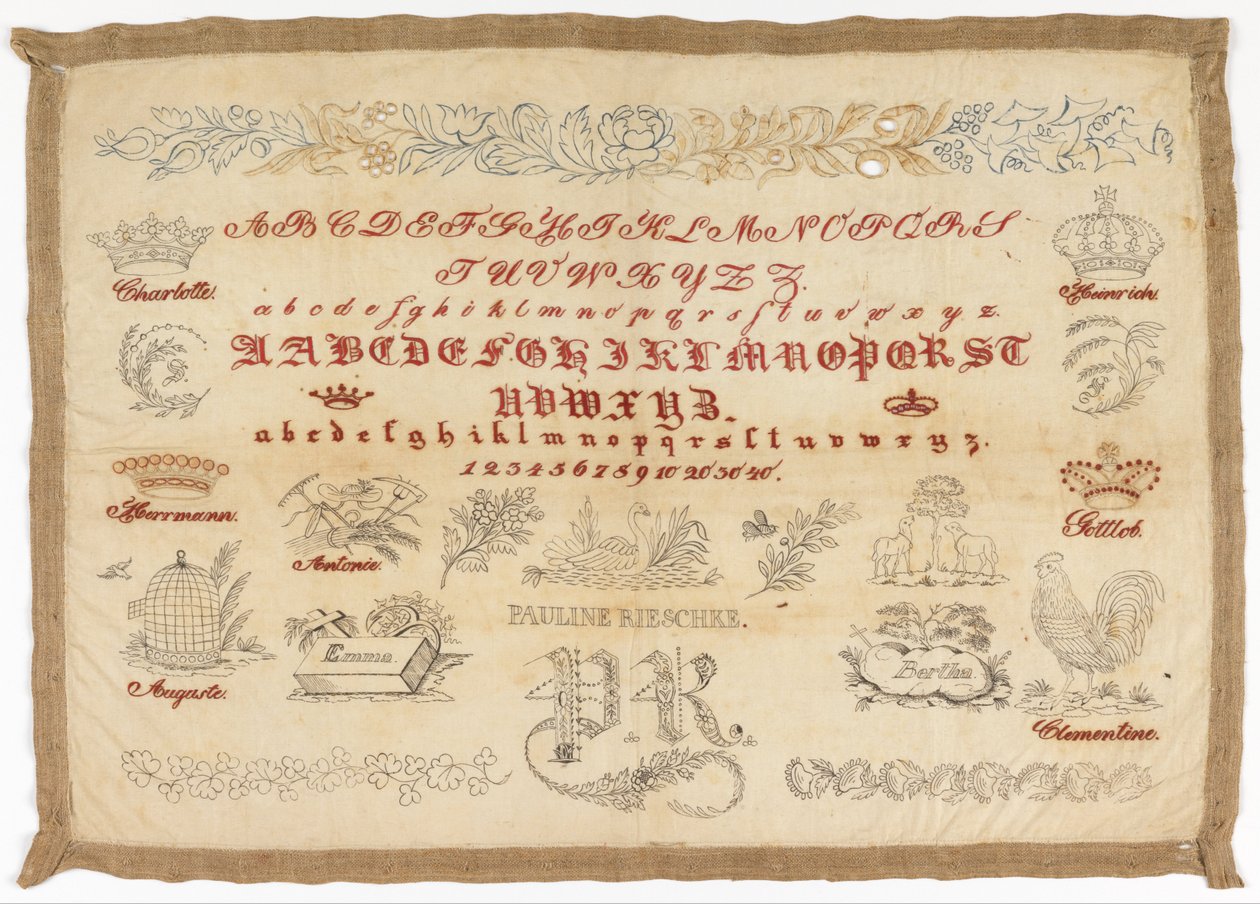 A B C D E F G H I K L M N O P Q R S
T U V W X Y Z Z.
a b c d e f g h i k l m n o p q r s ſ t u v w x y z.
Charlotte.
Heinrich.
C S.
A A B C D E F G H I K L M N O P Q R S T
U V W X Y Z.
a b c d e f g h i k l m n o p q r s ſ t u v w x y z.
1 2 3 4 5 6 7 8 9 10 20 30 40.
Herrmann.
Gottlob.
Antonie.
PAULINE RIESCHKE.
Emma.
Bertha.
Auguste.
Clementine.
P R.